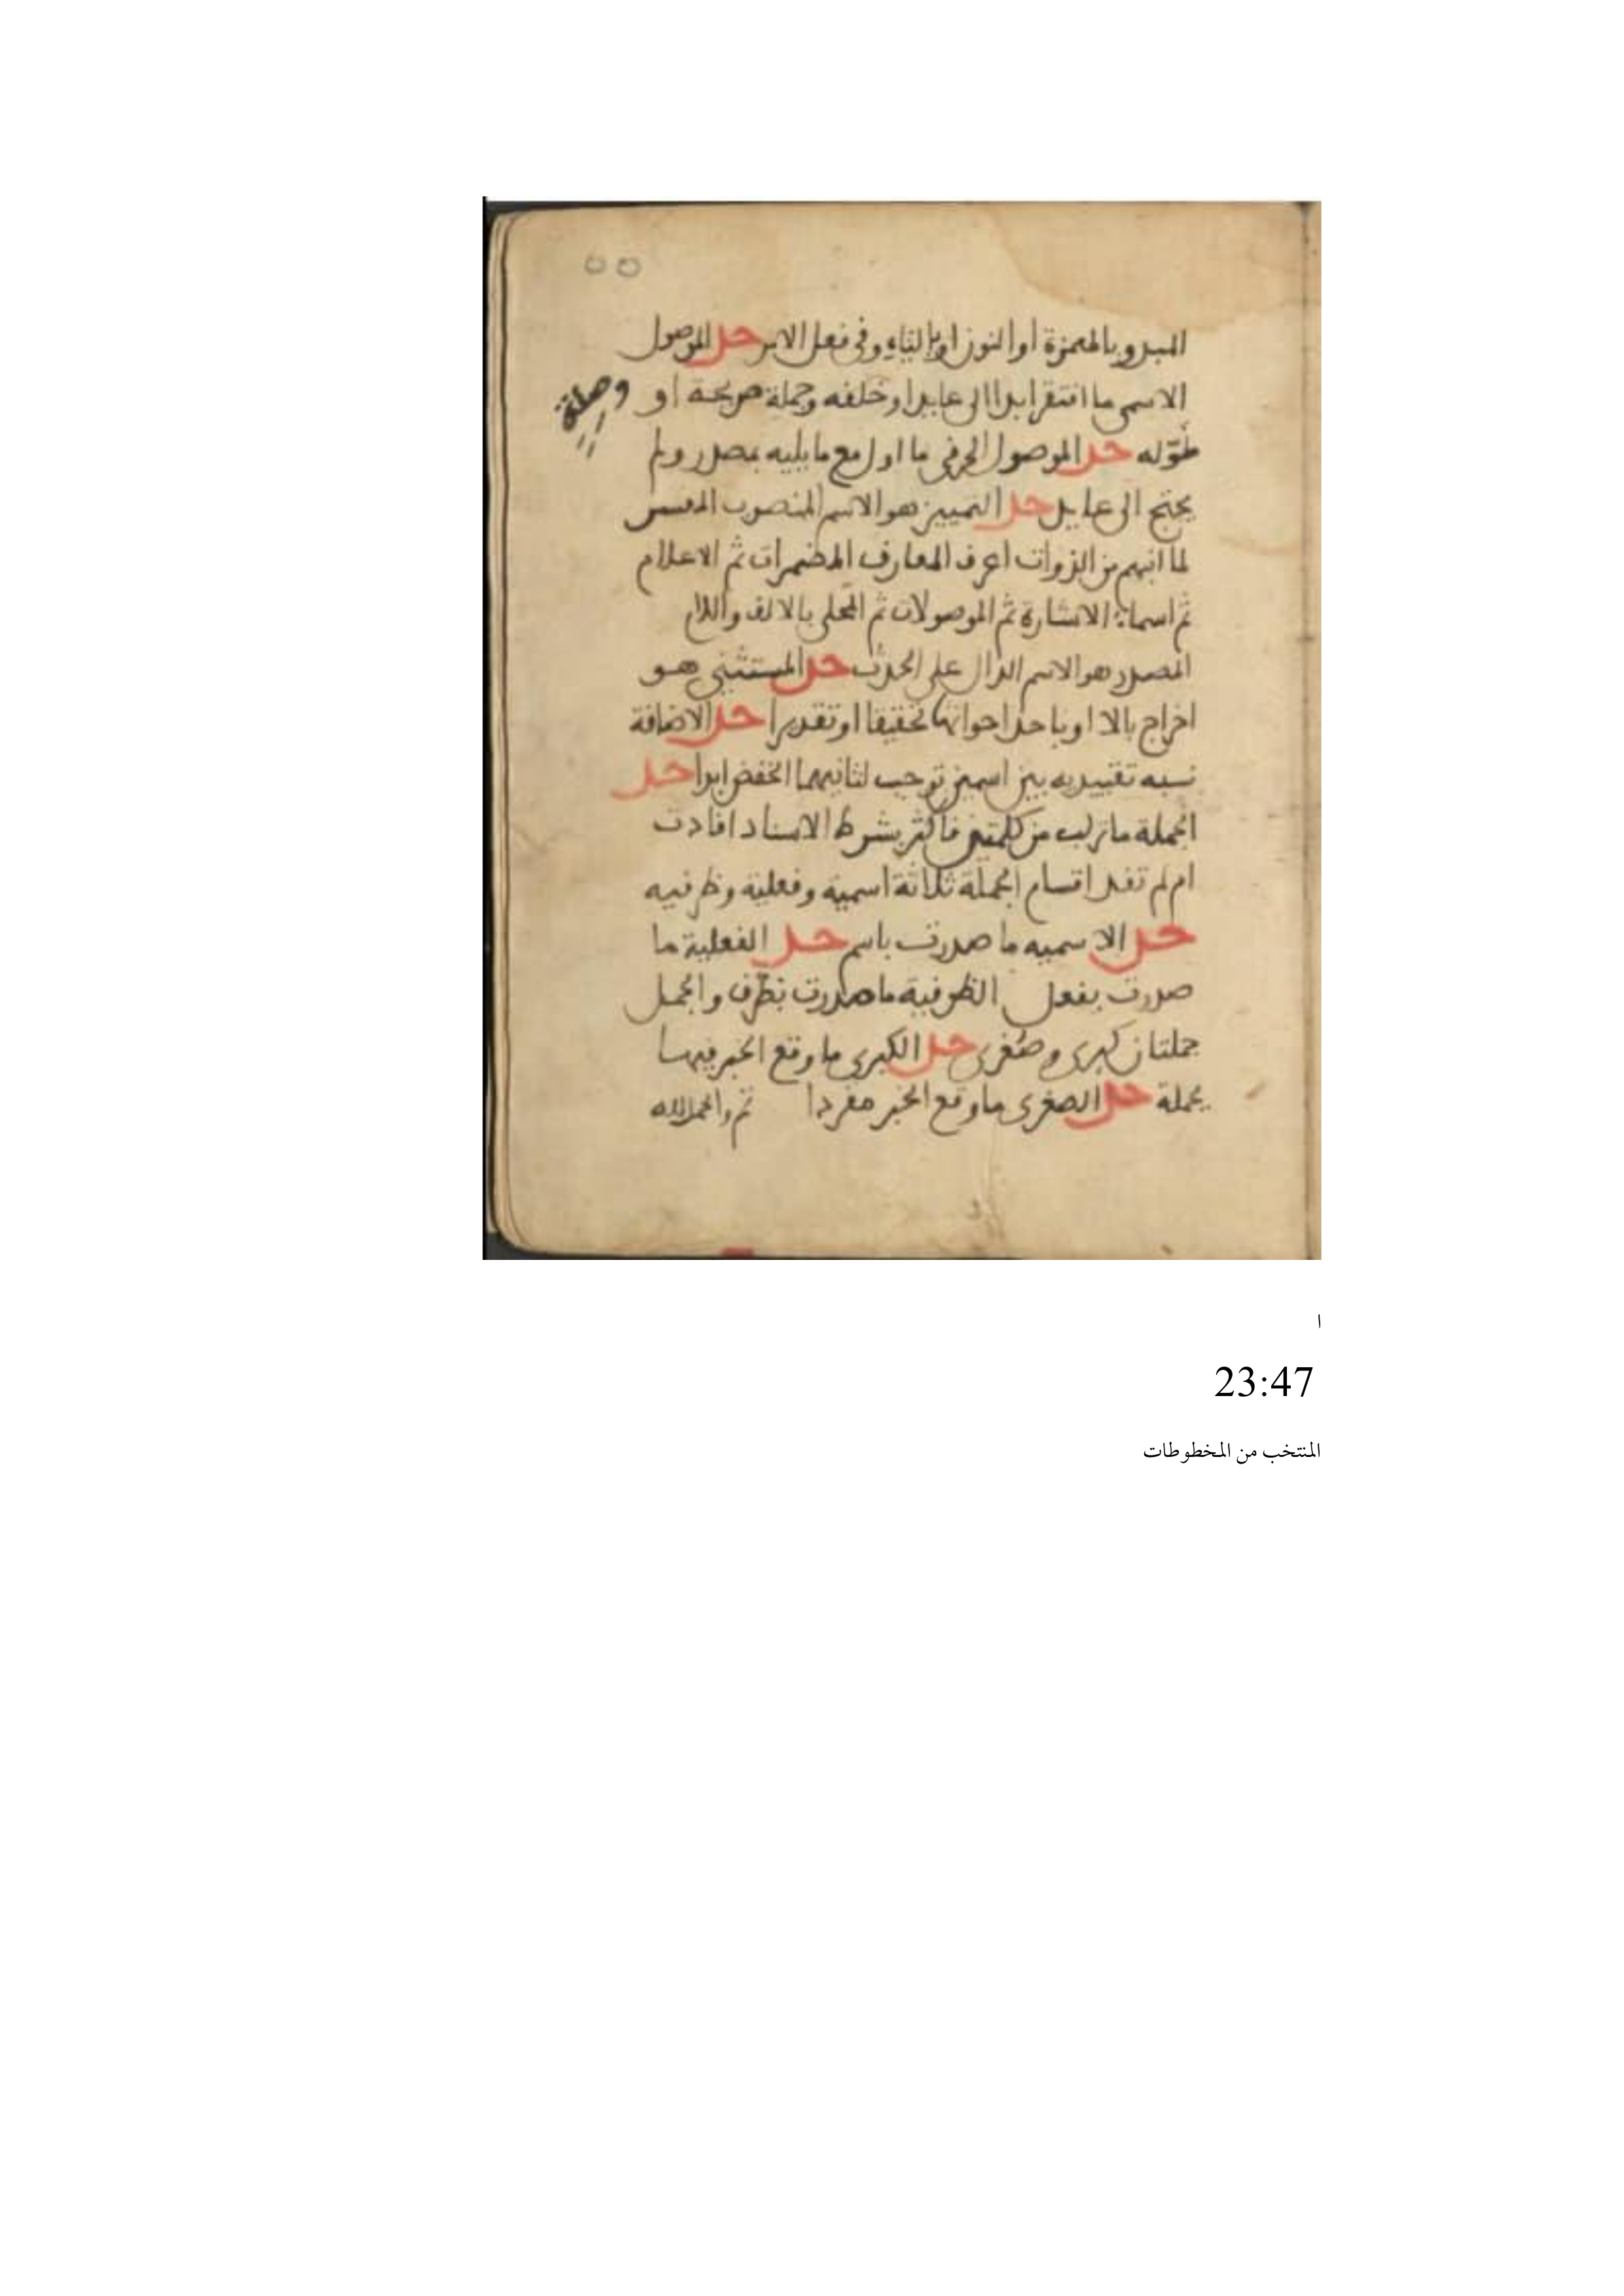 ٥٥
المبدو بالهمزة او النون او بالتاء وفى فعل الامر حد الموصول
الاسمى ما افتقر ابدا الى عايد او خلفه وجملة صريحة او
وصلة
مؤوله حد الموصول الحرفى ما اول مع مايليه بمصدر ولم
يحتج الى عايد حد التمييز هو الاسم المنصوب المفسر
لما انبهم من الذوات اعرف المعارف المضمرات ثم الاعلام
ثم اسماء الاشارة ثم الموصولات ثم المحلى بالالف واللام
المصدر هو الاسم الدال على الحدث حد المستثنى هو
اخراج بالا او باحد اخواتها تحقيقا او تقديرا حد الاضافة
نسبه تقييديه بين اسمين توجب لثانيهما الخفض ابدا حد
الجملة ما تركب من كلمتين فاكثر بشرط الاسناد افادت
ام لم تفد اقسام الجملة ثلاثة اسمية وفعلية وظرفيه
حد الاسميه ما صدرت باسم حد الفعلية ما
صدرت بفعل الظرفية ما صدرت بظرف والجمل
جملتان كبرى وصغرى حد الكبرى ما وقع الخبر فيها
جملة حد الصغرى ما وقع الخبر مفردا تم والحمد لله
ا
23:47
المنتخب من المخطوطات